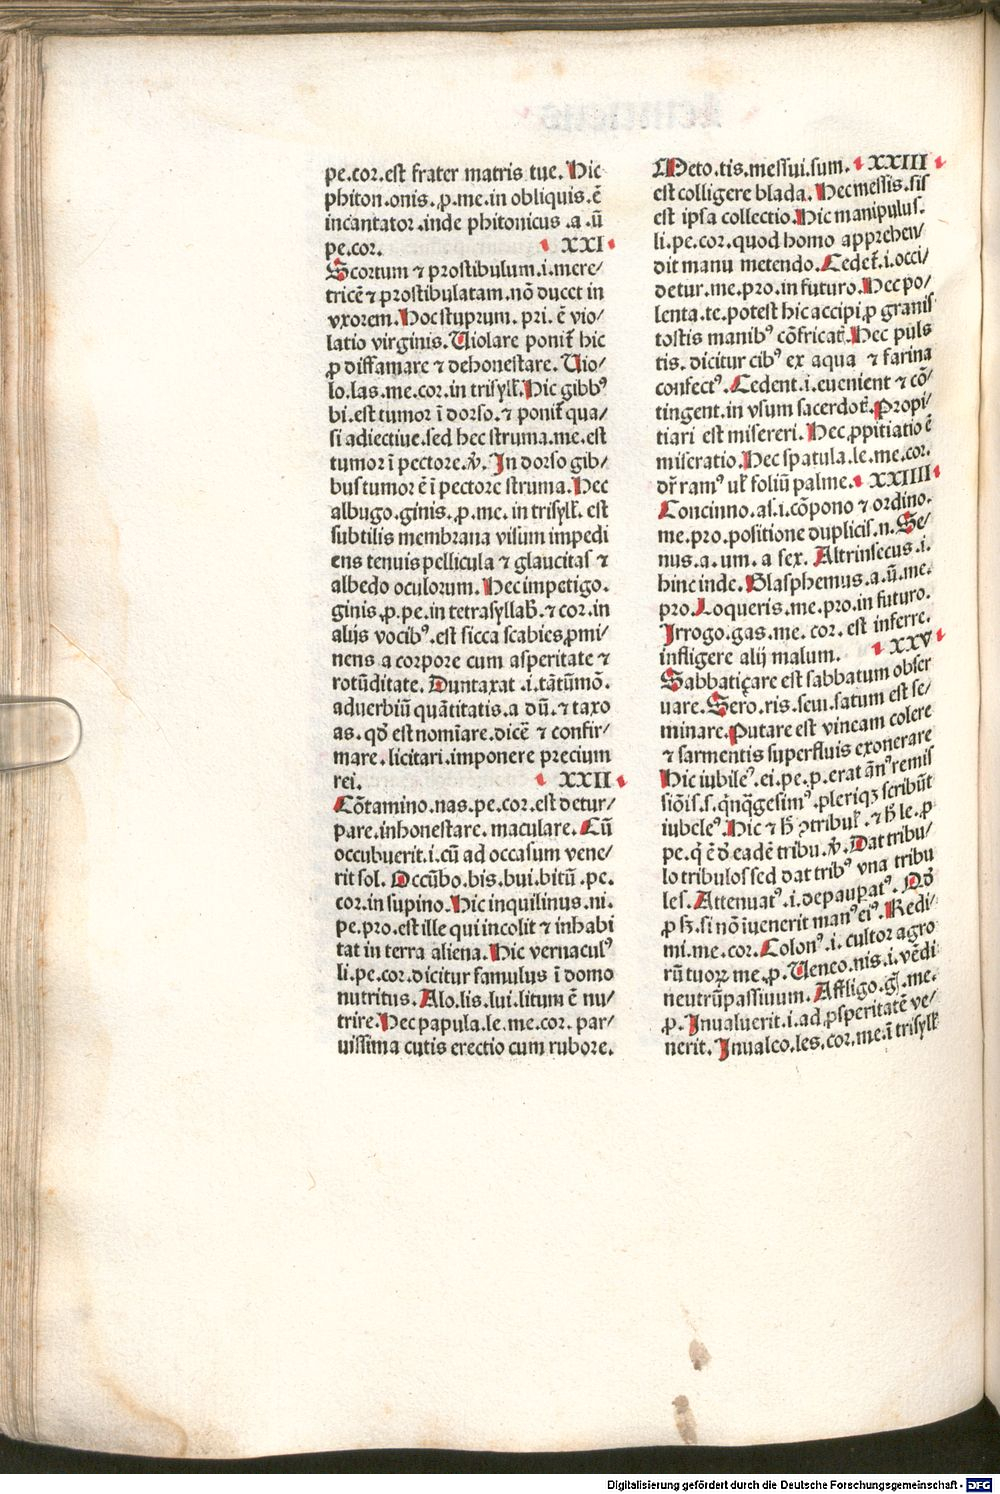 pe.cor.est frater matris tue. Hic
phiton.onis.ꝓ.me.in obliquis.ē
incantator.inde phitonicus.a.ū
pe.cor. XXI
Scortum ⁊ prostibulum.i.mere/
tricē ⁊ prostibulatam.nō ducet in
vxorem. Hoc stuprum.pri.ē vio/
latio virginis. Uiolare ponit᷑ hic
ꝓ diffamare ⁊ dehonestare. Uio/
lo.las.me.cor.in trisyll᷑. Hic gibbꝰ
bi.est tumor ī dorso.⁊ ponit᷑ qua/
si adiectiue.sed hec struma.me.est
tumor ī pectore.v̾. In dorso gib/
bus tumor ē ī pectore struma. Hec
albugo.ginis.ꝓ.me.in trisyll᷑.est
subtilis membrana visum impedi
ens tenuis pellicula ⁊ glaucitas ⁊
albedo oculorum. Hec impetigo.
ginis.ꝓ.pe.in tetrasyllab̄ ⁊ cor.in
alijs vocibꝰ.est sicca scabies ꝓmi/
nens a corpore cum asperitate ⁊
rotūditate. Duntaxat.i.tātūmō.
aduerbiū quātitatis.a dū.⁊ taxo
as.qd̄ est nomīare.dicē ⁊ confir/
mare.licitari.imponere precium
rei. XXII
Cōtamino.nas.pe.cor.est detur/
pare.inhonestare.maculare. Cū
occubuerit.i.cū ad occasum vene/
rit sol. Occūbo.bis.bui.bitū.pe.
cor.in supino. Hic inquilinus.ni.
pe.pro.est ille qui incolit ⁊ inhabi
tat in terra aliena. Hic vernaculꝰ
li.pe.cor.dicitur famulus ī domo
nutritus. Alo.lis.lui.litum ē nu/
trire. Hec papula.le.me.cor.par/
uissima cutis erectio cum rubore.
Meto.tis.messui.sum. XXIII
est colligere blada. Hec messis.sis
est ipsa collectio. Hic manipulus.
li.pe.cor.quod homo apprehen/
dit manu metendo. Cedet᷑.i.occi/
detur.me.pro.in futuro. Hec po/
lenta.te.potest hic accipi ꝓ granis
tostis manibꝰ cōfricat᷑. Hec puls
tis.dicitur cibꝰ ex aqua ⁊ farina
confectꝰ. Cedent.i.euenient ⁊ cō/
tingent.in vsum sacerdot᷑. Propi/
tiari est misereri. Hec ꝓpitiatio ē
miseratio. Hec spatula.le.me.cor.
dr̄ ramꝰ ul᷑ foliū palme. XXIIII
Concinno.as.i.cōpono ⁊ ordino.
me.pro.positione duplicis.n. Se/
nus.a.um.a sex. Altrinsecus.i.
hinc inde. Blasphemus.a.ū.me.
pro. Loqueris.me.pro.in futuro.
Irrogo.gas.me.cor.est inferre.
infligere alij malum. XXV
Sabbatiçare est sabbatum obser
uare. Sero.ris.seui.satum est se/
minare. Putare est vineam colere
⁊ sarmentis superfluis exonerare
Hic iubileꝰ.ei.pe.ꝓ.erat ānꝰ remis
siōis.s.qnqgesimꝰ.pleriqꝫ scribūt
iubeleꝰ. Hic ⁊ h̄ ↄtribul᷑.⁊ h̄ le.ꝓ
pe.q̇ ē d̄ eadē tribu.v̾. Dat tribu/
lo tribulos sed dat tribꝰ vna tribu
les. Attenuatꝰ.i.depauꝑatꝰ. Qd̄
ꝓ sꝫ.si nō īuenerit manꝰ eiꝰ. Redi/
mi.me.cor. Colonꝰ.i.cultor agro
rū tuoꝝ me.ꝓ. Ueneo.nis.i.vēdi
neutrū passiuum. Affligo.g̅.me.
ꝓ. Inualuerit.i.ad ꝓsperitatē ve/
nerit. Inualco.les.cor.me.ī trisyll᷑
Digitalisierung gefördert durch die Deutsche Forschungsgemeinschaft - DFG